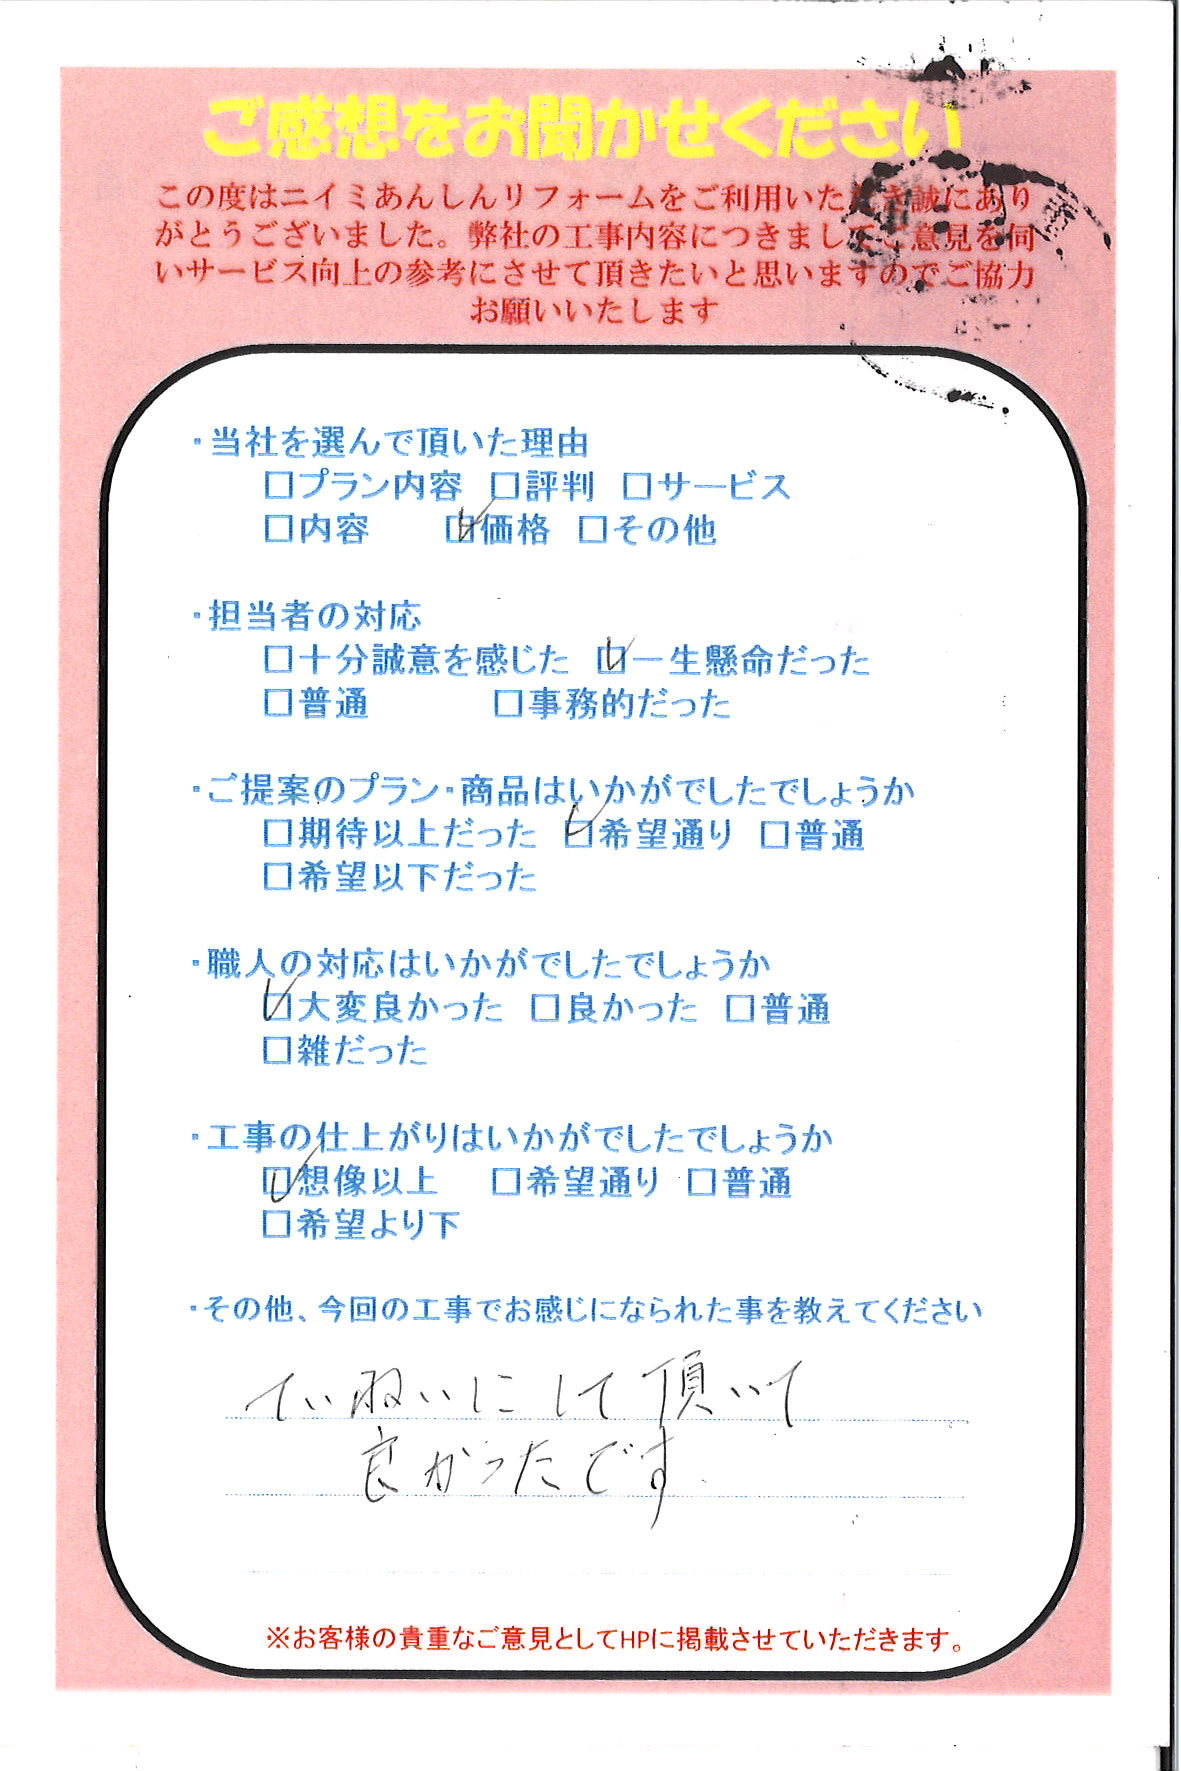 ご感想をお聞かせください
この度はニイミあんしんリフォームをご利用いただき誠にあり
がとうございました。弊社の工事内容につきましてご意見を伺
いサービス向上の参考にさせて頂きたいと思いますのでご協力
お願いいたします
・当社を選んで頂いた理由
□プラン内容 □評判 □サービス
□内容 ☑価格 □その他
・担当者の対応
□十分誠意を感じた ☑一生懸命だった
□普通 □事務的だった
・ご提案のプラン・商品はいかがでしたでしょうか
□期待以上だった ☑希望通り □普通
□希望以下だった
・職人の対応はいかがでしたでしょうか
☑大変良かった □良かった □普通
□雑だった
・工事の仕上がりはいかがでしたでしょうか
☑想像以上 □希望通り □普通
□希望より下
・その他、今回の工事でお感じになられた事を教えてください
ていねいにして頂いて
良かったです
※お客様の貴重なご意見としてHPに掲載させていただきます。